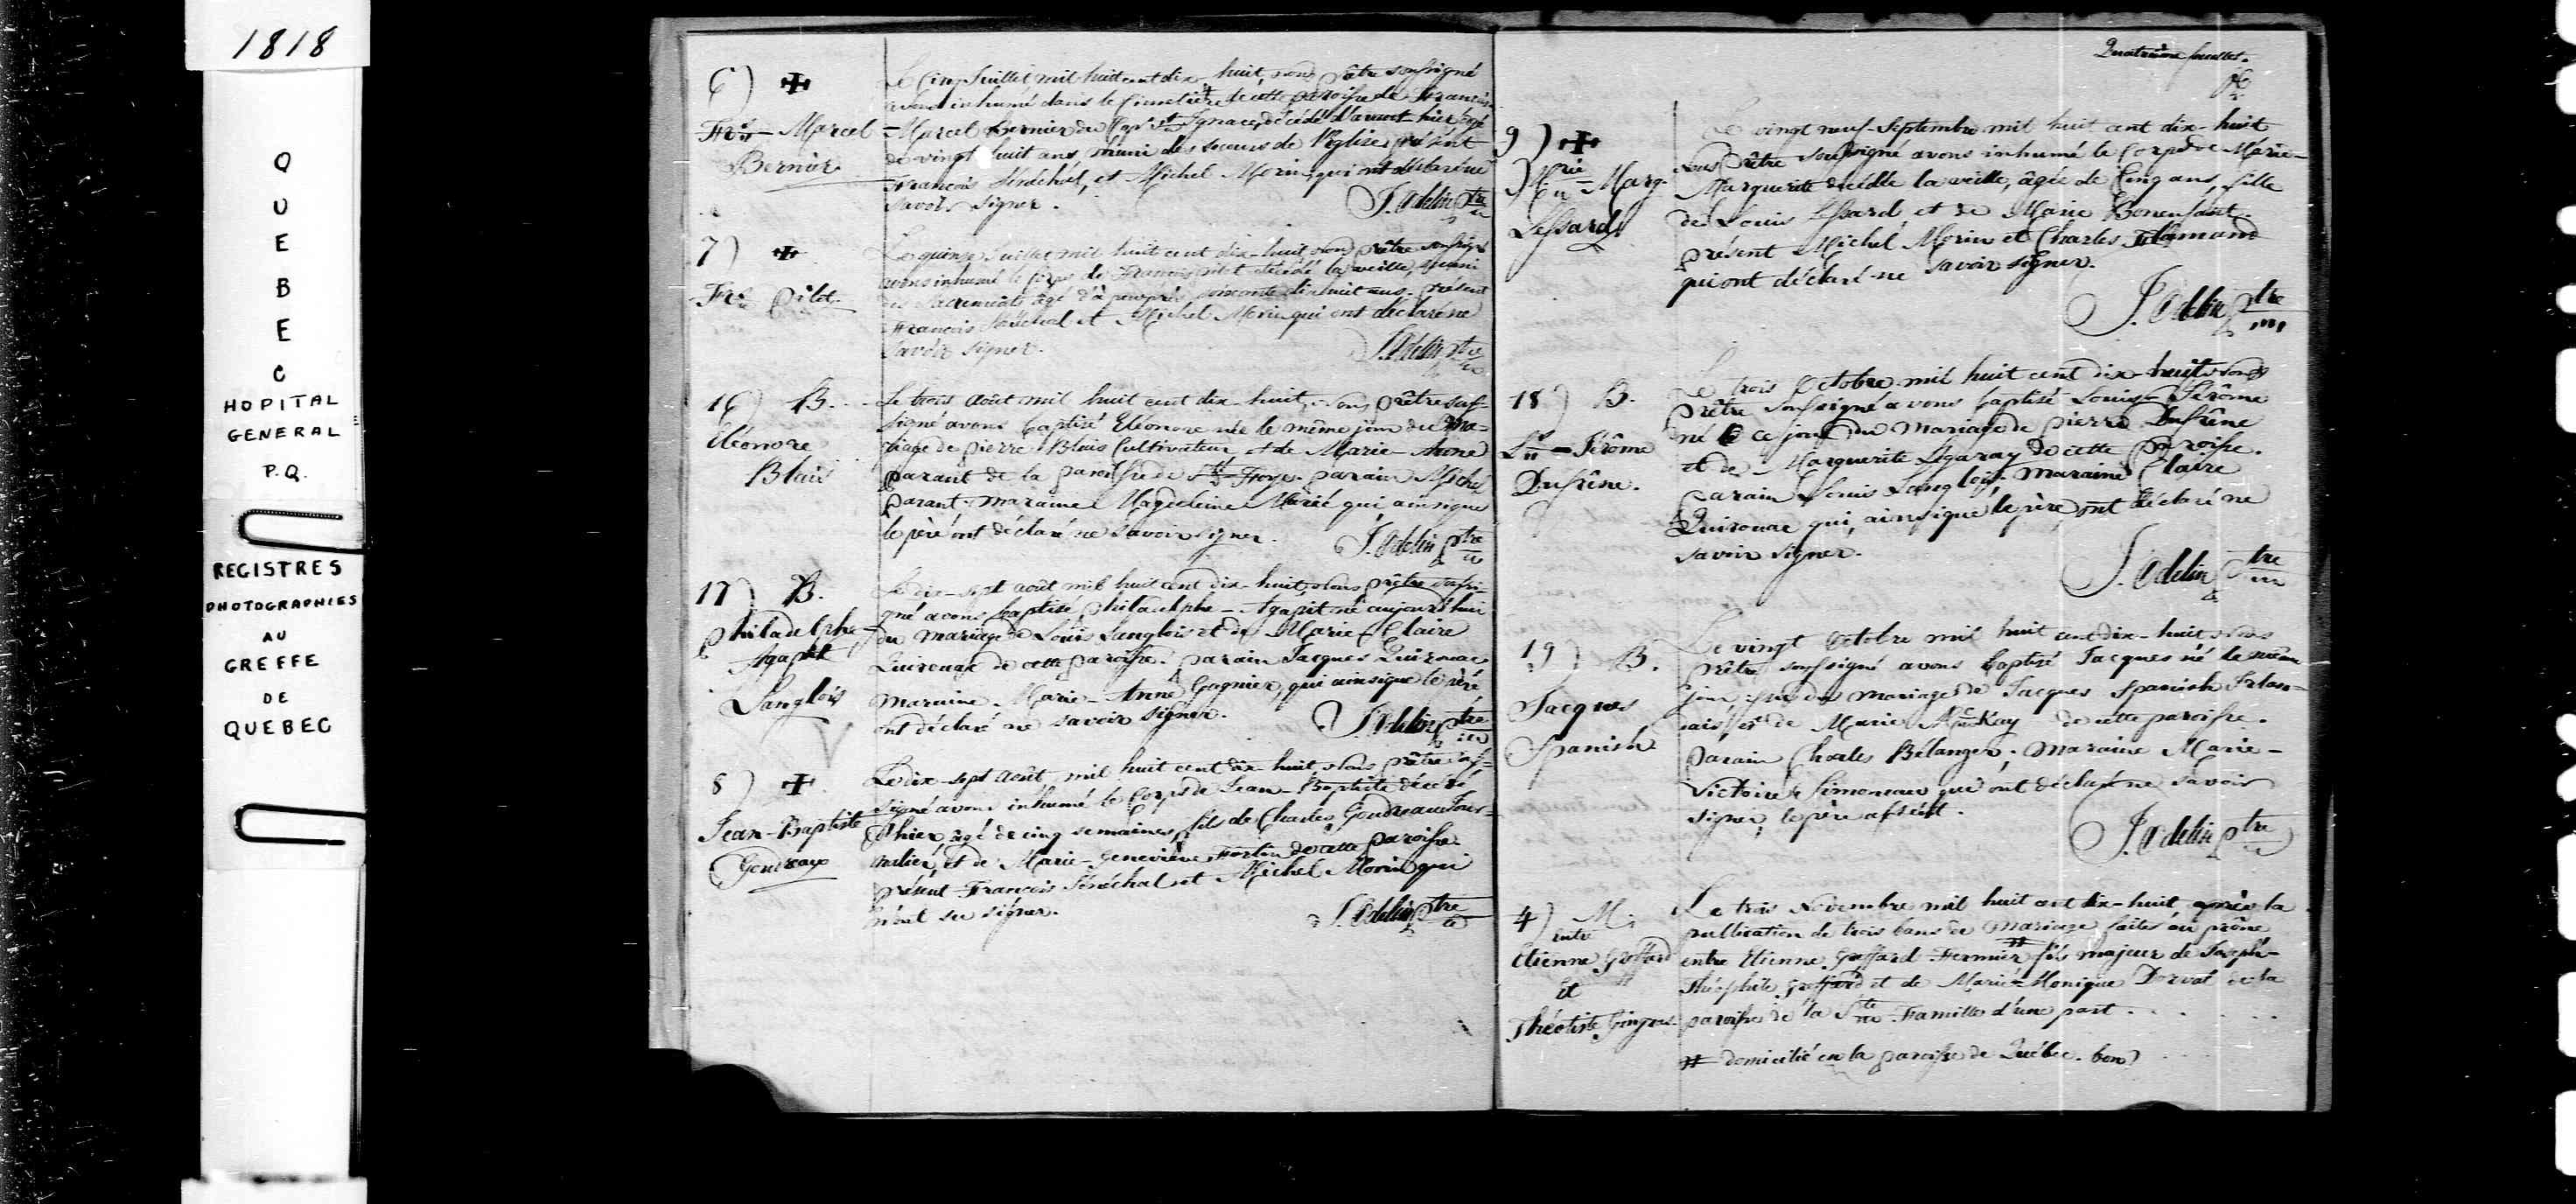 1818
QUEBEC
HOPITAL
GENERAL
P.Q.
REGISTRES
PHOTOGRAPHIES
AU
GREFFE
DE
QUEBEC
6) ✠
Frs - Marcel
Bernier
Le cinq Juillet mil huit cent dix-huit, nous prêtre soussigné
avons inhumé dans le Cimetière de cette paroisse de François
-Marcel Bernier du Cap St Ignace, décédé d'avant-hier, âgé
de vingt huit ans, muni des secours de l'Eglise, présent
François Sénéchal, et Michel Morin, qui ont déclaré ne
savoir signer.
J. Odelin ptre
7) ✠
Frs pilot.
Le quinze Juillet mil huit cent dix-huit, nous prêtre soussigné
avons inhumé le corps de François pilot décédé la veille, muni
des Sacrements âgé d'à peu près soixante dix huit ans. présent
François Sénéchal et Michel Morin qui ont déclaré ne
savoir signer.
J. Odelin ptre
16) B.
Eléonore
Blais
Le trois Août mil huit cent dix-huit, Nous prêtre sous-
signé avons baptisé Eléonore née le même jour du ma-
riage de pierre Blais Cultivateur, et de Marie-Anne
parant de la paroisse de Ste Foye. parain Michel
parant, maraine Magdeleine qui, ainsi que
le père ont déclaré ne savoir signer.
J. Odelin ptre
17) B.
philadelphe-
Agapit
Langlois
Le dix-sept août mil huit cent dix-huit, Nous prêtre soussi-
gné avons baptisé philadelphe-Agapit né aujourd'hui
du mariage de Louis Langlois et de Marie-Claire
Quirouac de cette paroisse. parain Jacques Quirouac
maraine Marie-Anne Gagnier, qui ainsi que le père
ont déclaré ne savoir signer.
J. Odelin ptre
8) ✠
Jean-Baptiste
Goudreau
Le dix-sept Août, mil huit cent dix huit, Nous prêtre sous-
signé avons inhumé le Corps de Jean-Baptiste décédé
d'hier, âgé de cinq semaines, fils de Charles Goudreau Jour-
nalier, et de Marie-Geneviève Fortin de cette paroisse
présent François Sénéchal et Michel Morin qui
n'ont su signer.
J. Odelin ptre
Quatrième feuillet.
9) ✠
Mrie - Marg.
Lessard
Le vingt neuf Septembre mil huit cent dix-huit
nous prêtre soussigné avons inhumé le Corps de Marie-
Marguerite décédée la veille, âgée de Cinq ans, fille
de Louis Lessard, et de Marie Bonenfant.
présent Michel Morin et Charles Flamand
qui ont déclaré ne savoir signer.
J. Odelin ptre
18) B.
Ls - Jérôme
Dufrêne.
Le trois Octobre mil huit cent dix-huit nous
prêtre soussigné avons baptisé Louis-Jérôme
né ce jour du mariage de pierre Dufrêne
et de Marguerite Legaray de cette paroisse.
parain Louis Langlois, maraine Claire
Quirouac qui, ainsi que le père, ont déclaré ne
savoir signer.
J. Odelin ptre
19) B.
Jacques
Spanish
Le vingt Octobre mil huit cent dix-huit, nous
prêtre soussigné avons baptisé Jacques né le même
jour, du mariage de Jacques Spanish Irlan-
dais, et de Marie McKay de cette paroisse.
parain Charles Bélanger, maraine Marie-
Victoire Simoneau qui ont déclaré ne savoir
signer, le père absent.
J. Odelin ptre
4) M.
entre
Etienne Greffard
et
Théotiste Gingras.
Le trois Novembre mil huit cent dix-huit, après la
publication de trois bans de mariage faites au prône
entre Etienne Greffard Fermier # fils majeur de Joseph-
Théophile Greffard et de Marie-Monique Dorval de la
paroisse de la Ste Famille d'une part . . . . . .
# domicilié en la paroisse de Québec. bon)